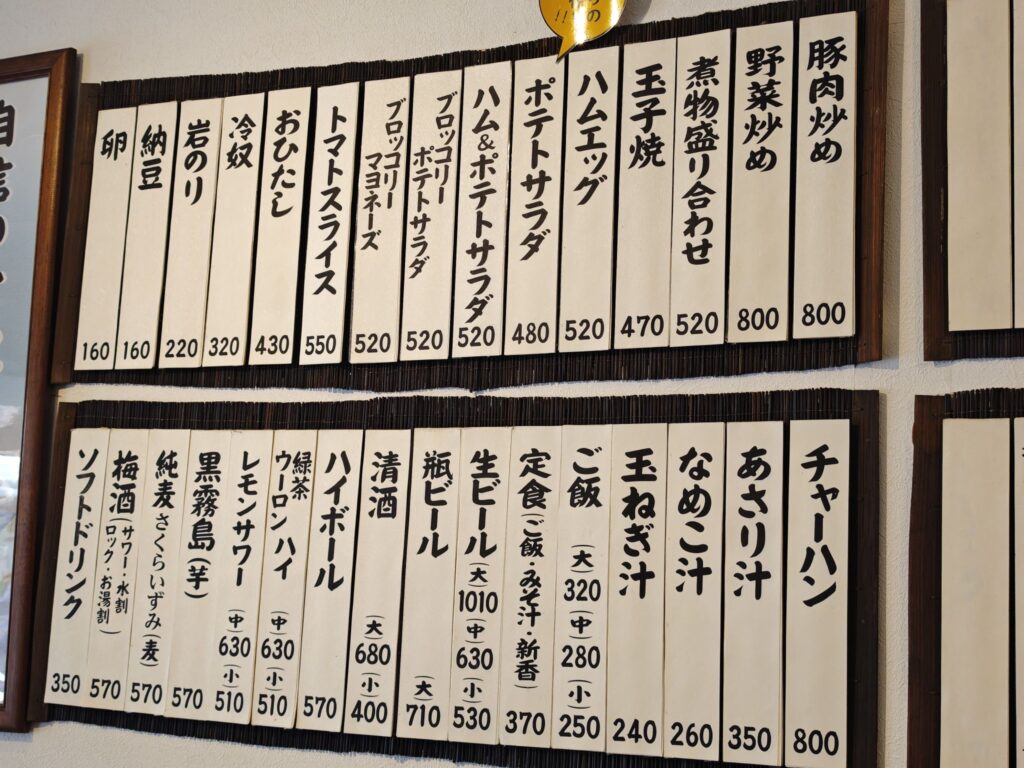 豚肉炒め 800
野菜炒め 800
煮物盛り合わせ 520
玉子焼 470
ハムエッグ 520
ポテトサラダ 480
ハム&ポテトサラダ 520
ブロッコリー
ポテトサラダ 520
ブロッコリー
マヨネーズ 520
トマトスライス 550
おひたし 430
冷奴 320
岩のり 220
納豆 160
卵 160
チャーハン 800
あさり汁 350
なめこ汁 260
玉ねぎ汁 240
ご飯 (大) 320 (中) 280 (小) 250
定食(ご飯・みそ汁・新香) 370
生ビール (大) 1010 (中) 630 (小) 530
瓶ビール (大) 710
清酒 (大) 680 (小) 400
ハイボール 570
緑茶
ウーロンハイ (中) 630 (小) 510
レモンサワー (中) 630 (小) 510
黒霧島(芋) 570
純麦さくらいずみ(麦) 570
梅酒(サワー・水割
ロック・お湯割) 570
ソフトドリンク 350